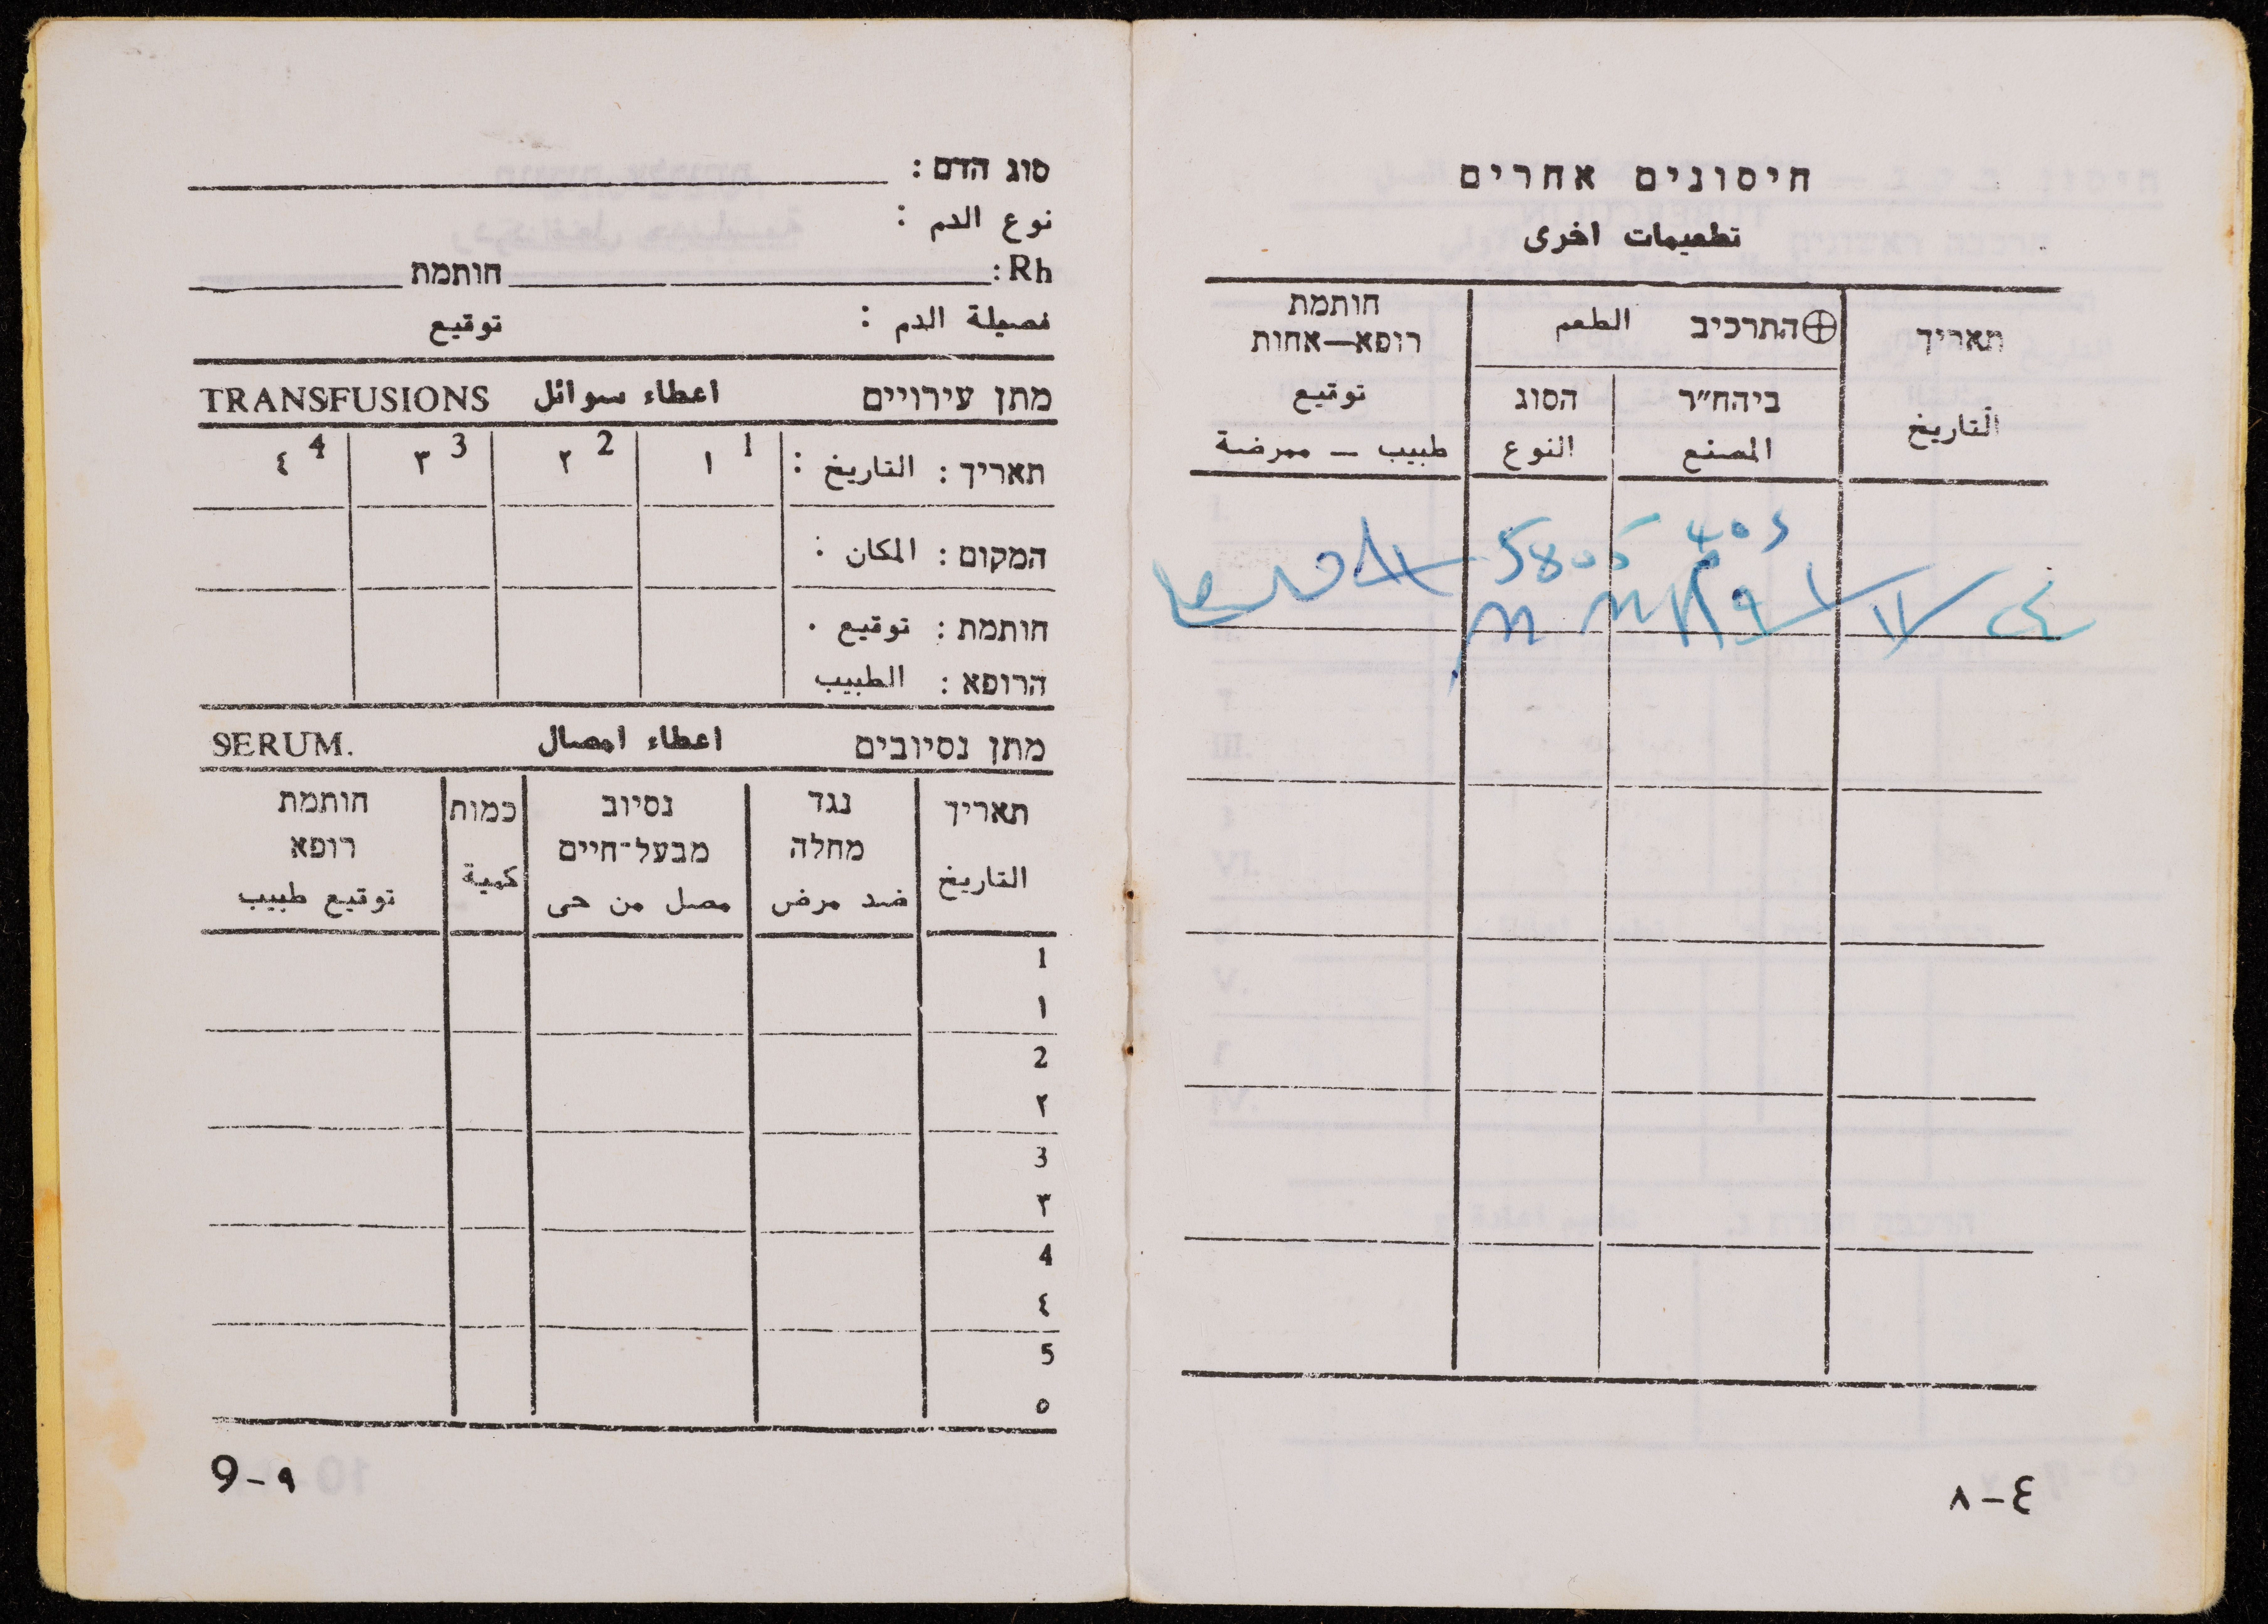 חיסונים אחרים
تطعيمات اخرى
תאריך
التاريخ
התרכיב الطعم
ביהח״ר
المصنع
הסוג
النوع
חותמת
רופא—אחות
توقيع
طبيب — ممرضة
5805
٨-
סוג הדם :
نوع الدم :
Rh: חותמת
فصيلة الدم : توقيع
מתן עירויים اعطاء سوائل TRANSFUSIONS
תאריך : التاريخ : 1 ١ 2 ٢ 3 ٣ 4 ٤
המקום : المكان :
חותמת : توقيع .
הרופא : الطبيب
מתן נסיובים اعطاء امصال SERUM.
תאריך
التاريخ
נגד
מחלה
ضد مرض
נסיוב
מבעל-חיים
مصل من حى
כמות
كمية
חותמת
רופא
توقيع طبيب
1
١
2
٢
3
٣
4
٤
5
٥
9-٩